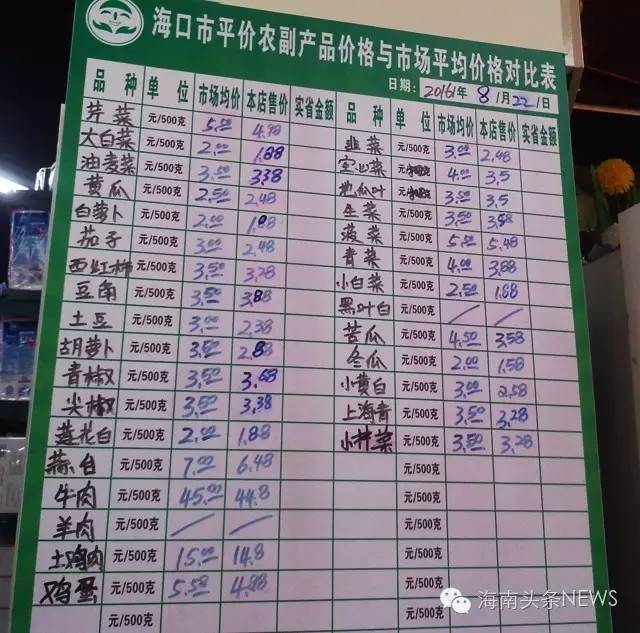 海口市平价农副产品价格与市场平均价格对比表
日期：2016年8月22日
品种 单位 市场均价 本店售价 实省金额 品种 单位 市场均价 本店售价 实省金额
芹菜 元/500克 5.00 4.98
大白菜 元/500克 2.00 1.88 韭菜 元/500克 3.00 2.48
油麦菜 元/500克 3.50 3.38 空心菜 4.00 3.5
黄瓜 元/500克 2.50 2.48 地瓜叶 3.50 3.5
白萝卜 元/500克 2.00 1.88 生菜 元/500克 3.50
茄子 元/500克 3.00 2.48 菠菜 元/500克 5.50 5.48
西红柿 元/500克 3.50 3.28 青菜 元/500克 4.00 3.88
豆角 元/500克 3.50 3.88 小白菜 元/500克 2.50 1.88
土豆 元/500克 3.00 2.38 黑叶白 元/500克 / /
胡萝卜 元/500克 3.50 2.88 苦瓜 元/500克 4.50 3.58
青椒 元/500克 3.50 3.68 冬瓜 元/500克 2.00 1.58
尖椒 元/500克 3.50 3.38 小黄白 元/500克 3.00 2.58
莲花白 元/500克 2.00 1.88 上海青 元/500克 3.50 3.28
蒜白 元/500克 7.00 6.48 小芥菜 元/500克 3.50 3.28
牛肉 元/500克 45.00 44.8 元/500克
羊肉 元/500克 / / 元/500克
土鸡肉 元/500克 15.00 14.8 元/500克
鸡蛋 元/500克 5.58 4.98 元/500克
元/500克 元/500克
海南头条NEWS